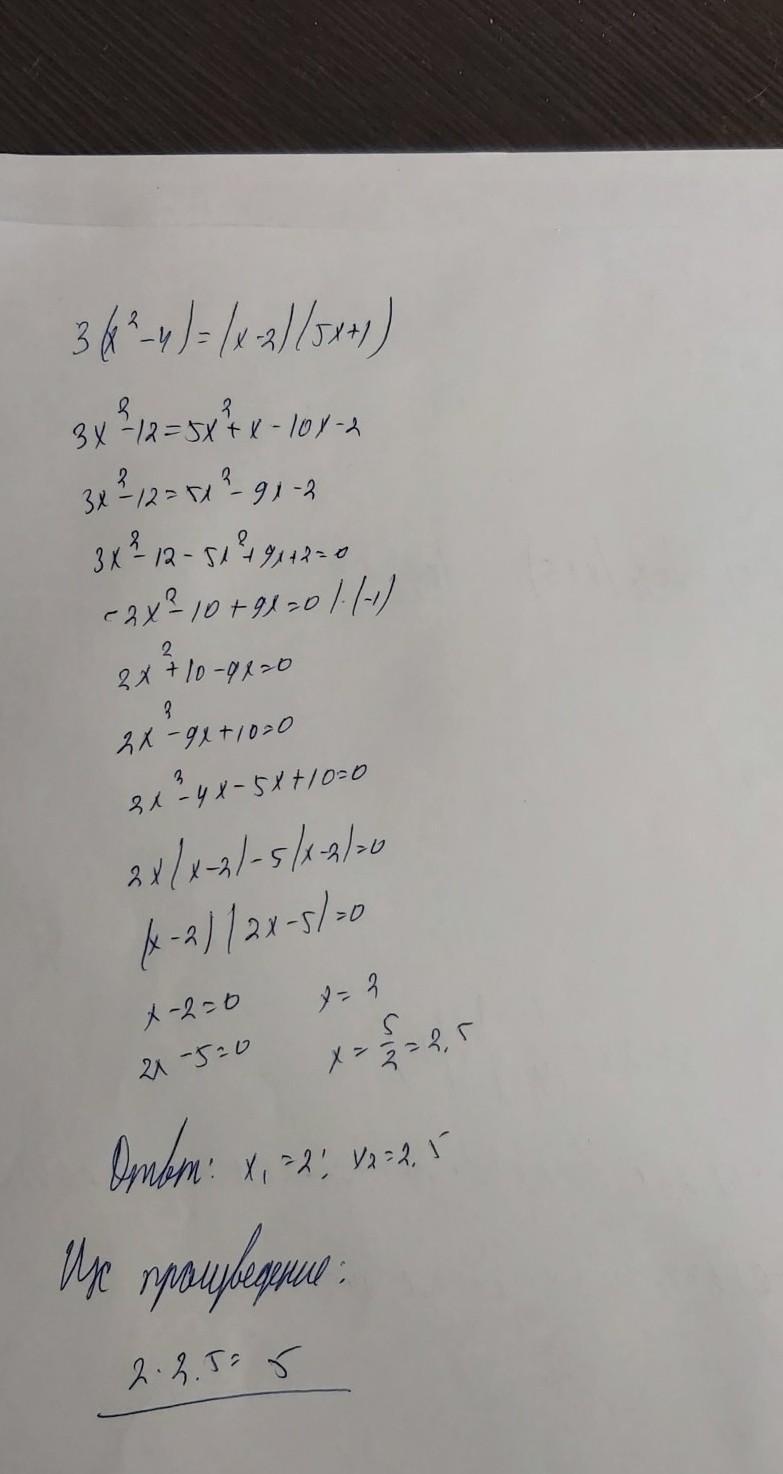 3(x²-4)=(x-2)(5x+1)
3x²-12=5x²+x-10x-2
3x²-12=5x²-9x-2
3x²-12-5x²+9x+2=0
-2x²-10+9x=0 |·(-1)
2x²+10-9x=0
2x²-9x+10=0
2x²-4x-5x+10=0
2x(x-2)-5(x-2)=0
(x-2)(2x-5)=0
x-2=0 x=2
2x-5=0 x=5/2=2,5
Ответ: x₁=2; x₂=2,5
Их произведение:
2·2,5= 5